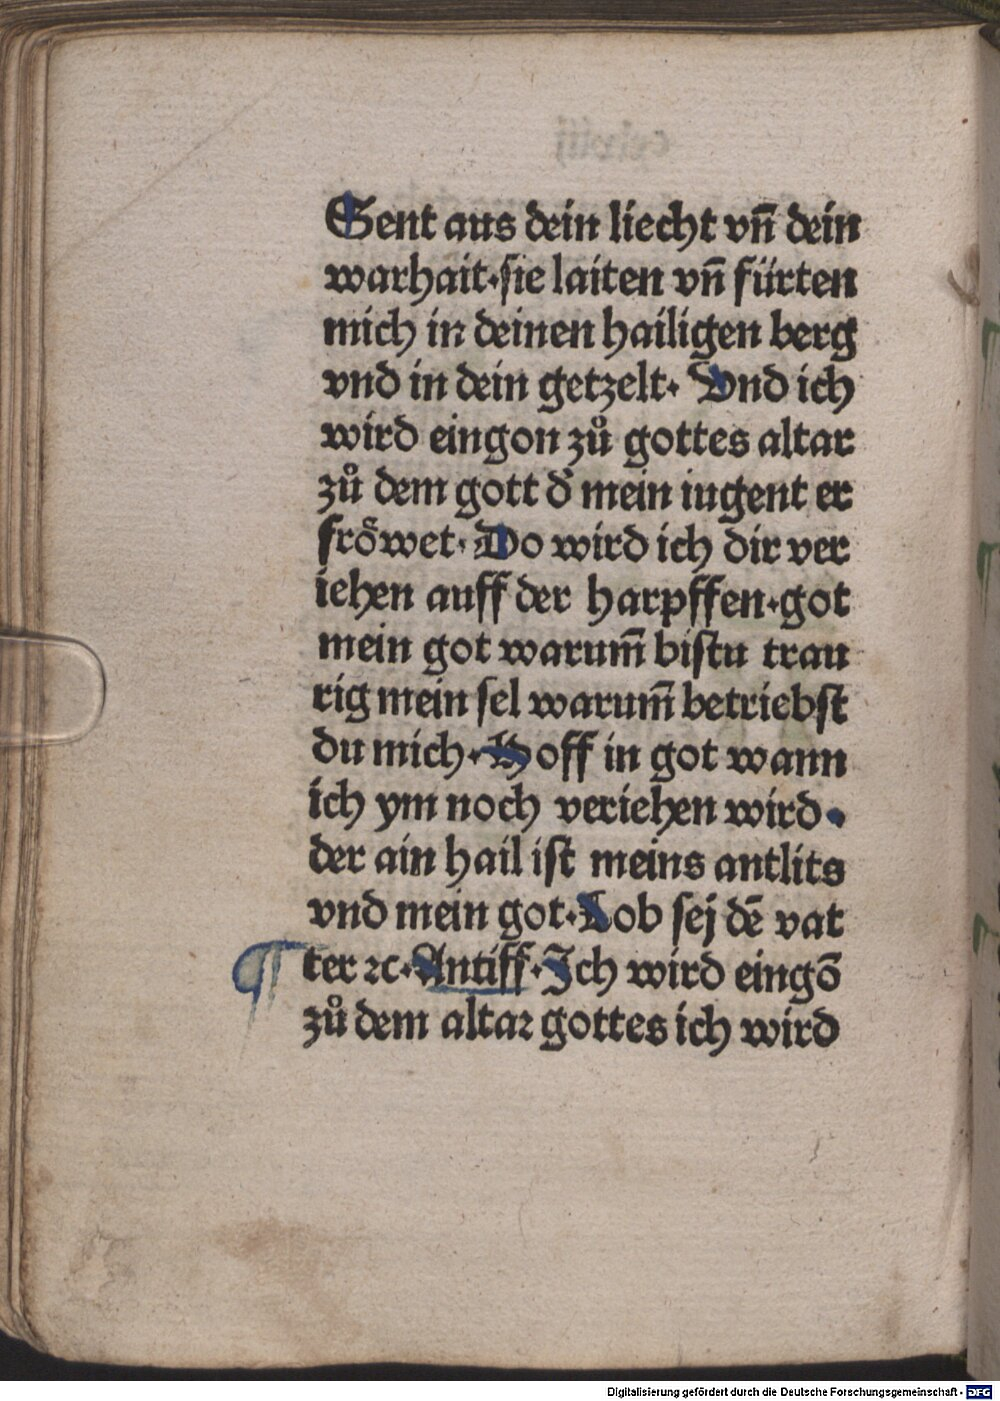 Sent aus dein liecht vn̄ dein
warhait·sie laiten vn̄ fürten
mich in deinen hailigen berg
vnd in dein getzelt· Vnd ich
wird eingon zů gottes altar
zů dem gott d̕ mein iugent er
frőwet· Do wird ich dir ver
iehen auff der harpffen·got
mein got warum̄ bistu trau
rig mein sel warum̄ betriebst
du mich· Hoff in got wann
ich ym noch veriehen wird·
der ain hail ist meins antlits
vnd mein got·Lob sej dē vat
¶ ter ⁊c·Antiff·Ich wird eingō
zů dem altar gottes ich wird
Digitalisierung gefördert durch die Deutsche Forschungsgemeinschaft - DFG